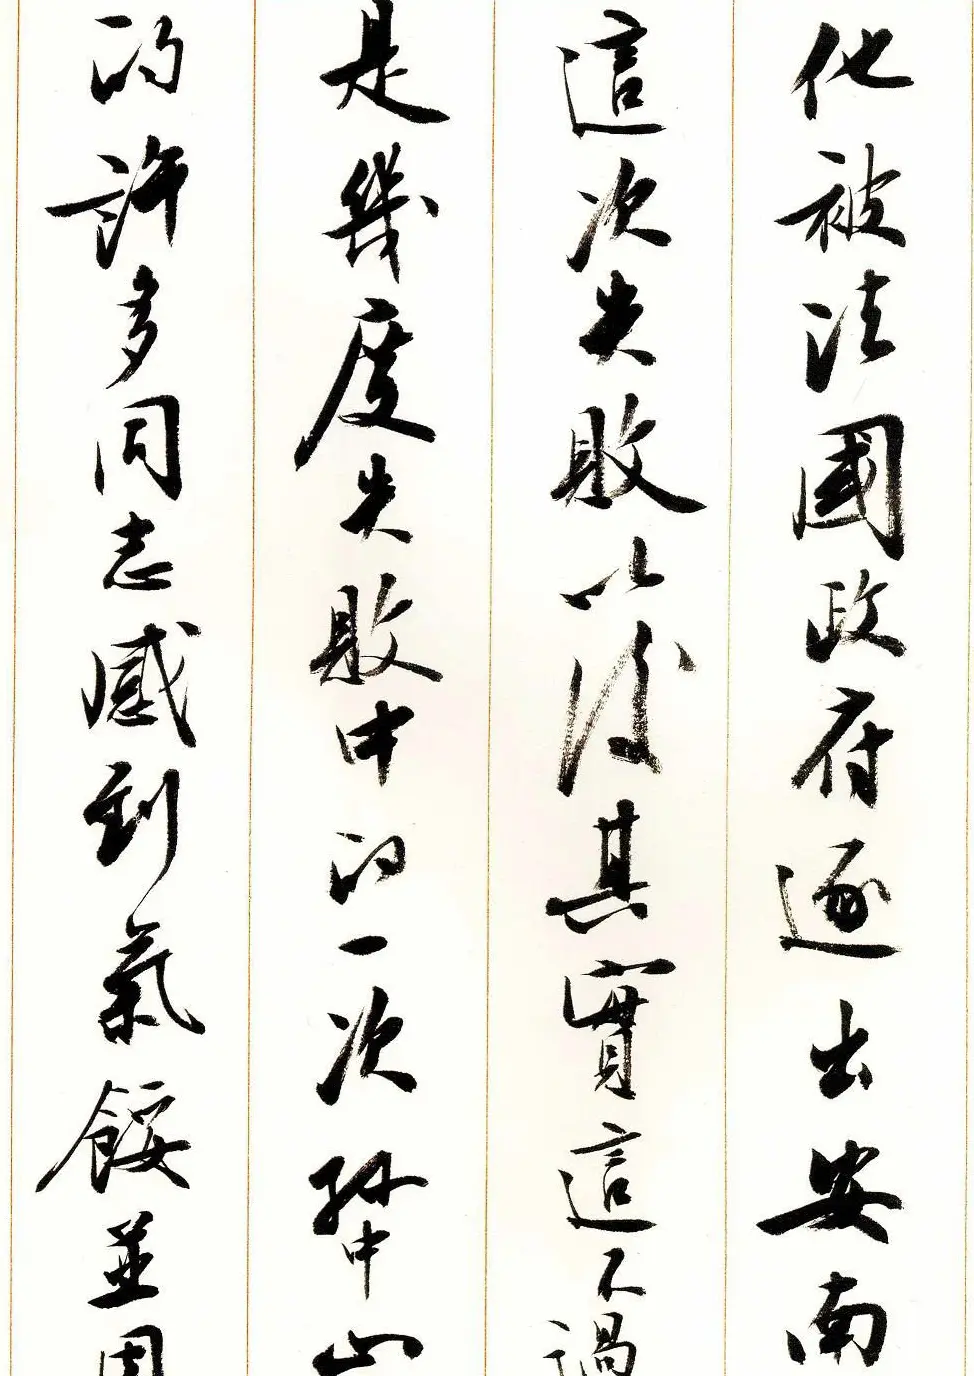 他被法國政府逐出安南
這次失敗以後其實這不過
是幾度失敗中的一次孫中山
的許多同志感到氣餒並因